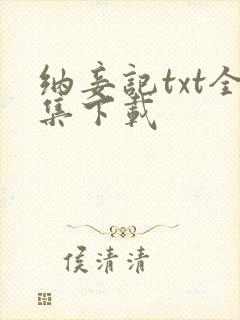 纳妾记txt全
集下载
侯清清